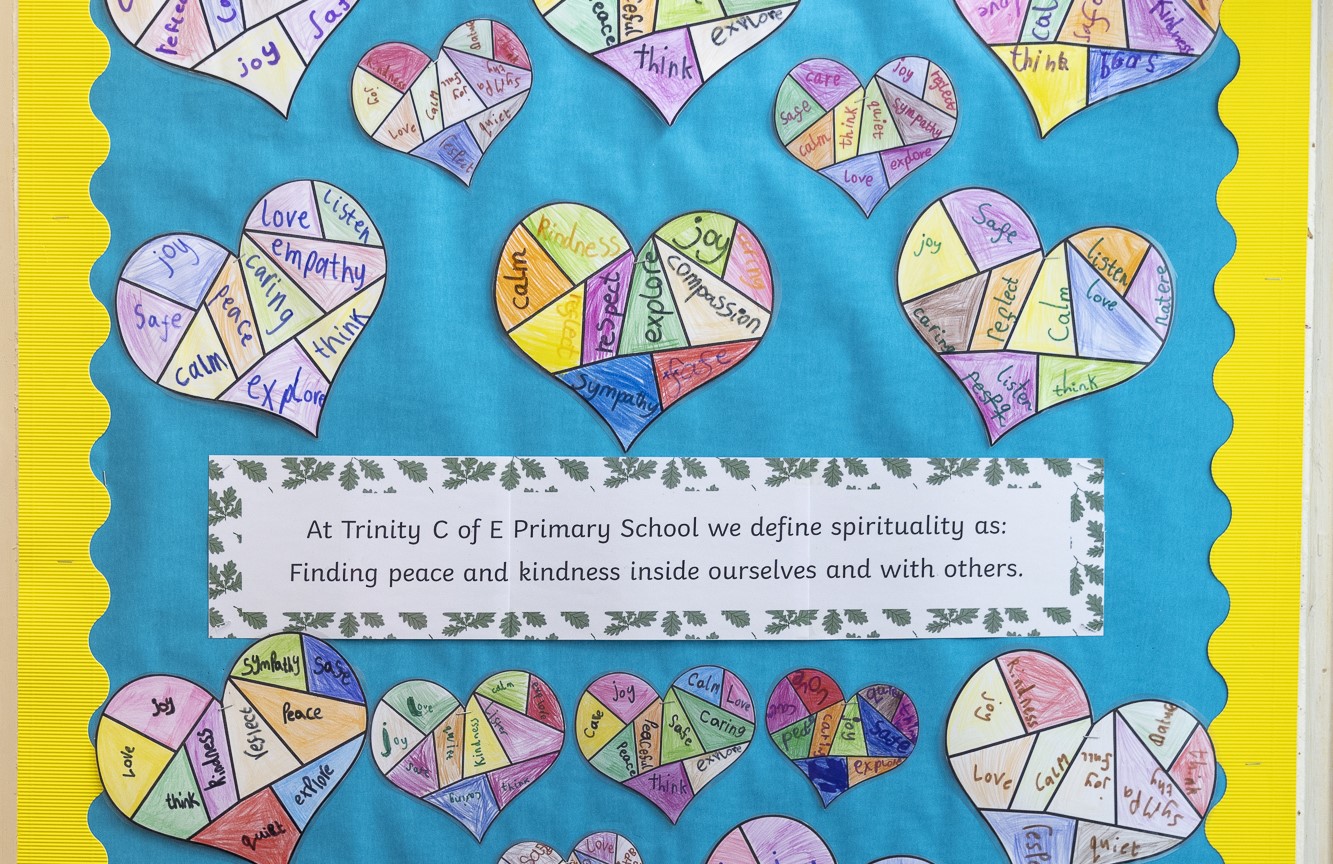 reflect
joy
safe
peace
think
explore
love
calm
safe
kindness
think
Kindness
joy
Love
Calm
quiet
care
joy
reflect
safe
think
quiet
sympathy
calm
Love
explore
love
listen
joy
empathy
caring
Safe
peace
think
calm
explore
kindness
joy
caring
calm
explore
compassion
respect
Sympathy
safe
Safe
joy
listen
natere
reflect
Calm
love
caring
listen
think
At Trinity C of E Primary School we define spirituality as:
Finding peace and kindness inside ourselves and with others.
Sympathy
safe
joy
Peace
reflect
Love
kindness
think
explore
quiet
Love
calm
explore
joy
Kindness
safe
caring
think
joy
Calm
Love
Care
Peaceful
Safe
Caring
Peace
explore
think
love
joy
safe
explore
Kindness
joy
Love
Calm
joy
think
quiet
Love